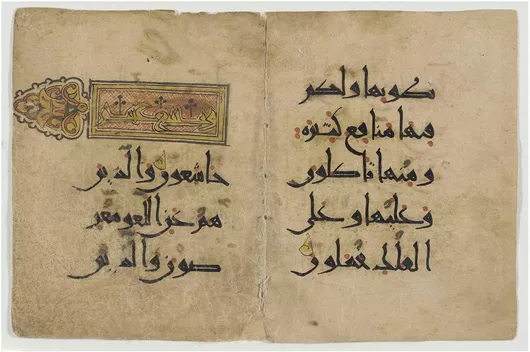 طونها ولكم
فيها منافع كثيرة
ومنها تاكلون
وعليها وعلى
الفلك تحملون
خاشعون والذين
هم عن اللغو معر
ضون والذين